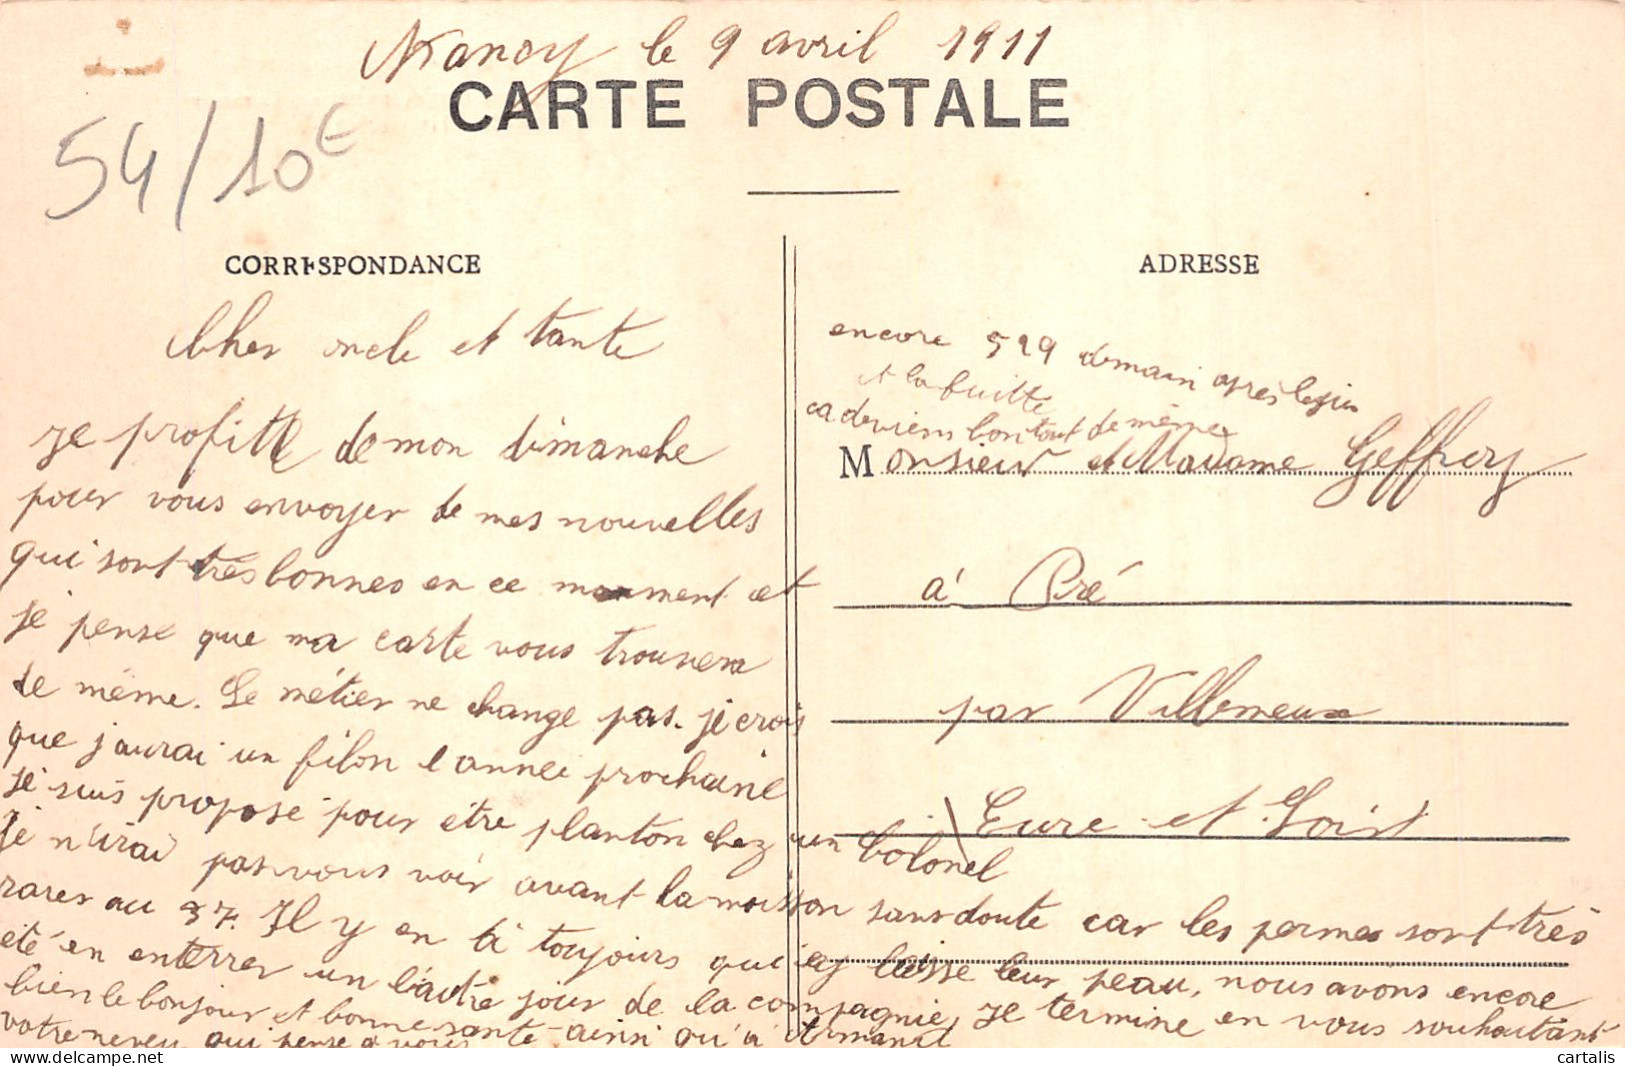 Nancy le 9 avril 1911
CARTE POSTALE
54/10€
CORRESPONDANCE
Cher oncle et tante
je profitte de mon dimanche
pour vous envoyer de mes nouvelles
qui sont très bonnes en ce moment et
je pense que ma carte vous trouvera
de même. Le métier ne change pas. je crois
que j'aurai un filon l'année prochaine
je suis proposé pour être planton chez un Colonel
je n'irai pas vous voir avant la moisson sans doute car les permes sont très
rares au 37. Il y en a toujours qui y laisse leur peau, nous avons encore
été en enterrer un l'autre jour de la compagnie, je termine en vous souhaitant
bien le bonjour et bonne santé ainsi qu'à Armand
votre neveu qui pense a vous
ADRESSE
encore 529 demain après le jus
et la fuitte
ca deviens bon tout de même
Monsieur et Madame Geffroy
à Pré
par Villemeux
Eure et Loir
cartalis